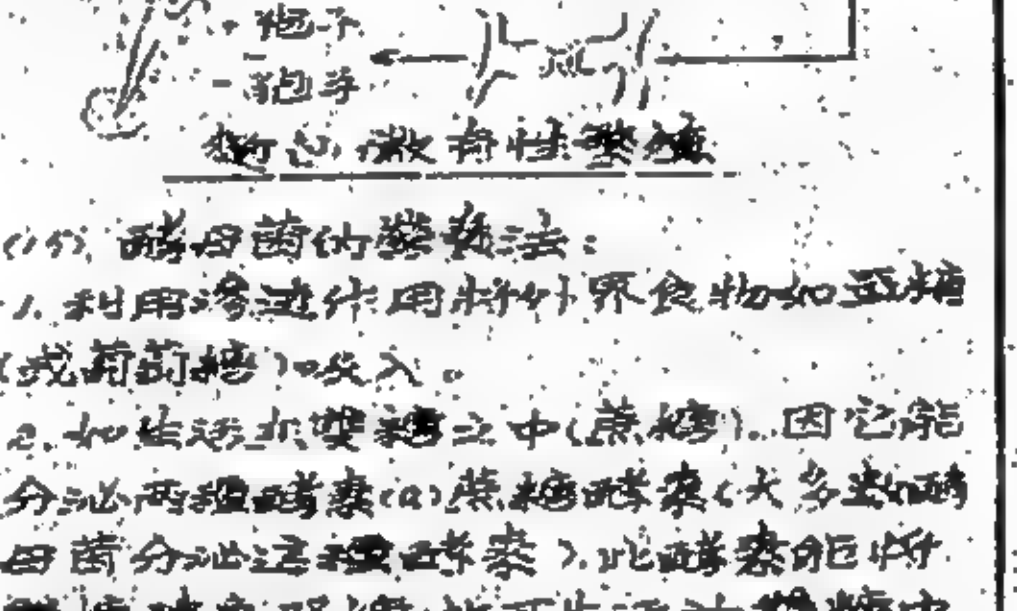 -孢子
-孢子
有性繁殖
(15). 酵母菌的營養法:
1. 利用滲進作用將外界食物如亚糖
(或葡萄糖)吸入。
2. 如生活在雙糖之中(蔗糖). 因它能
分泌两種酵素(a)蔗糖酵素(大多數酵
母菌分泌这種酵素). 此酵素能將